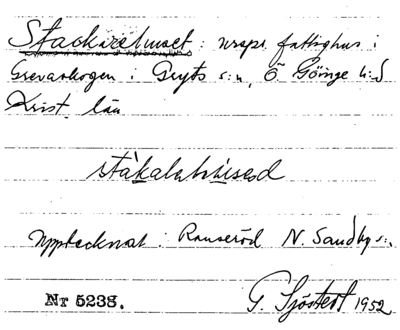 Stackarehuset: urspr. fattighus i
Grevaskogen i Gryts s:n, Ö. Göinge h:d
Krist. län
Upptecknat: Ranseröd N. Sandby s:n.
Nr 5238. G. Sjöstedt 1952